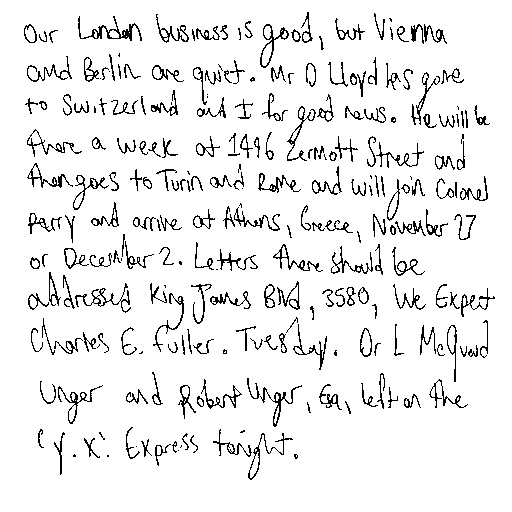 Our London business is good, but Vienna
and Berlin are quiet. Mr D Lloyd has gone
to Switzerland and I for good news. He will be
there a week at 1496 Zermott Street and
then goes to Turin and Rome and will join Colonel
parry and arrive at Athens, Greece, November 27
or December 2. Letters there should be
addressed King James Blvd, 3580, We Expect
Charles E. Fuller. Tuesday. Dr L McQuaid
Unger and Robert Unger, Esq, left on the
'Y.X'. Express tonight.